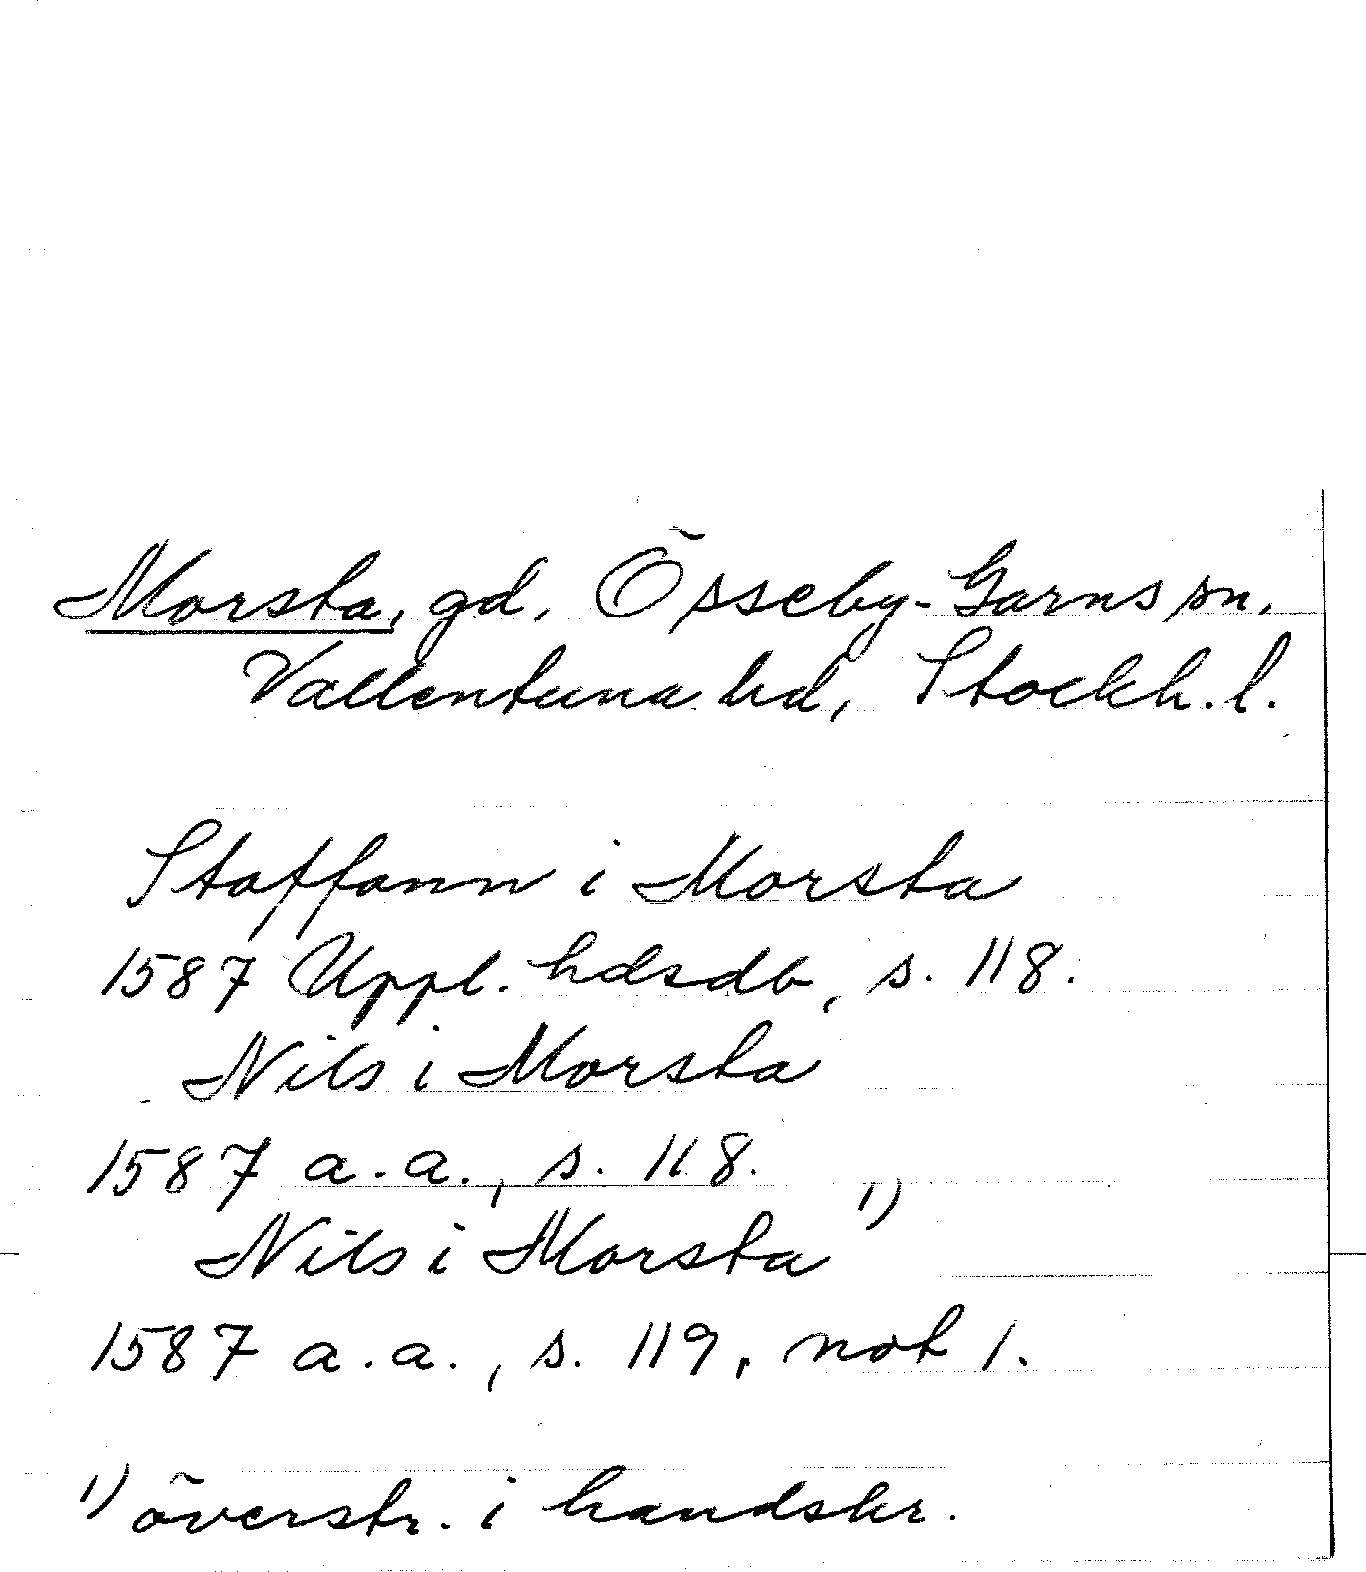 Morsta, gd, Össeby-Garns sn,
Vallentuna hd, Stockh. l.
Staffann i Morsta
1587 Uppl. hdsdb, s. 118.
Nils i Morsta
1587 a.a., s. 118.
Nils i Morsta 1)
1587 a.a., s. 119, not 1.
1) överstr. i handskr.